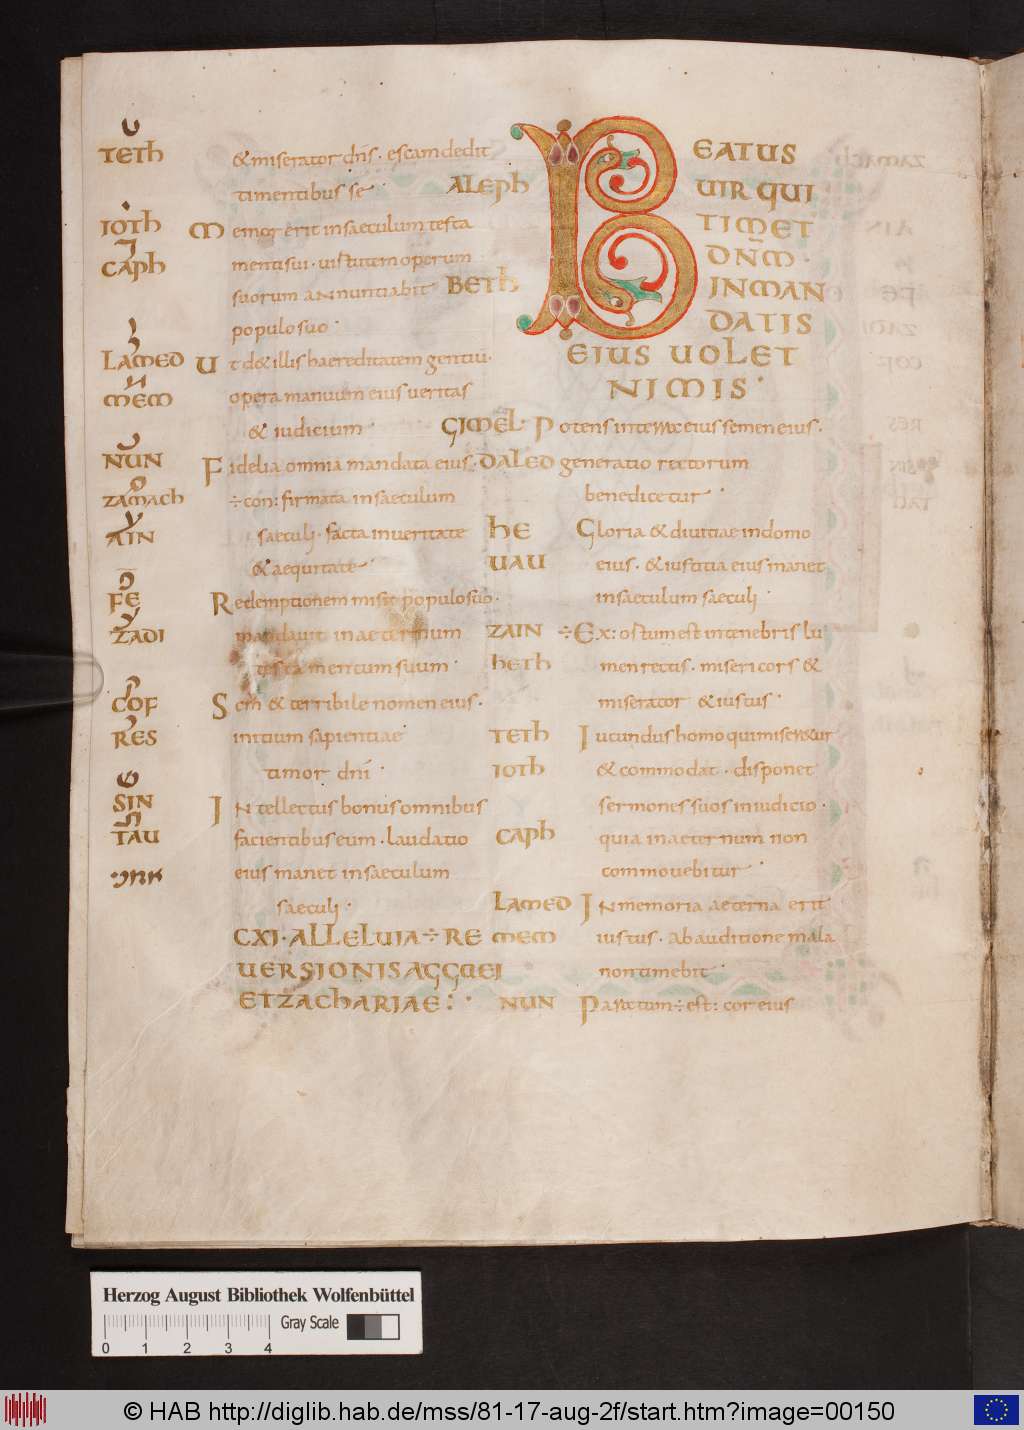 TETH
& miserator dns̄. escam dedit
timentibus se·
IOTH
Memor erit in saeculum testa
CAPH
menti sui· uirtutem operum
suorum annuntiabit
populo suo·
LAMED
Ut d& illis haereditatem gentiū·
MEM
opera manuum eius ueritas
& iudicium·
NUN
Fidelia omnia mandata eius·
ZAMACH
÷con: firmata in saeculum
AIN
saeculi· facta in ueritate
& aequitate·
FE
Redemptionem misit populo suo·
ZADI
mandauit in aeternum
testamentum suum·
COF
Scm̄ & terribile nomen eius·
RES
initium sapientiae
timor dnī·
SIN
Intellectus bonus omnibus
TAU
facientibus eum· laudatio
eius manet in saeculum
saeculi·
CXI· ALLELUIA ÷ RE
UERSIONIS AGGUEI
ET ZACHARIAE:·
BEATUS
ALEPH
UIR QUI
TIMET
DN̄M·
BETH
IN MAN
DATIS
EIUS UOLET
NIMIS·
GIMEL· Potens in terra eius semen eius·
DALED generatio rectorum
benedicetur·
HE
Gloria & diuitiae in domo
UAU
eius· & iustitia eius manet
in saeculum saeculi·
ZAIN
÷Ex: ortum est in tenebris lu
HETH
men rectis· misericors &
miserator & iustus·
TETH
Iucundus homo qui miser&ur
IOTH
& commodat· disponet
sermones suos in iudicio·
CAPH
quia in aeternum non
commouebitur·
LAMED
In memoria aeterna erit
MEM
iustus· ab auditione mala
non timebit·
NUN
Paratum ÷est: cor eius
Herzog August Bibliothek Wolfenbüttel
Gray Scale
0 1 2 3 4
© HAB http://diglib.hab.de/mss/81-17-aug-2f/start.htm?image=00150